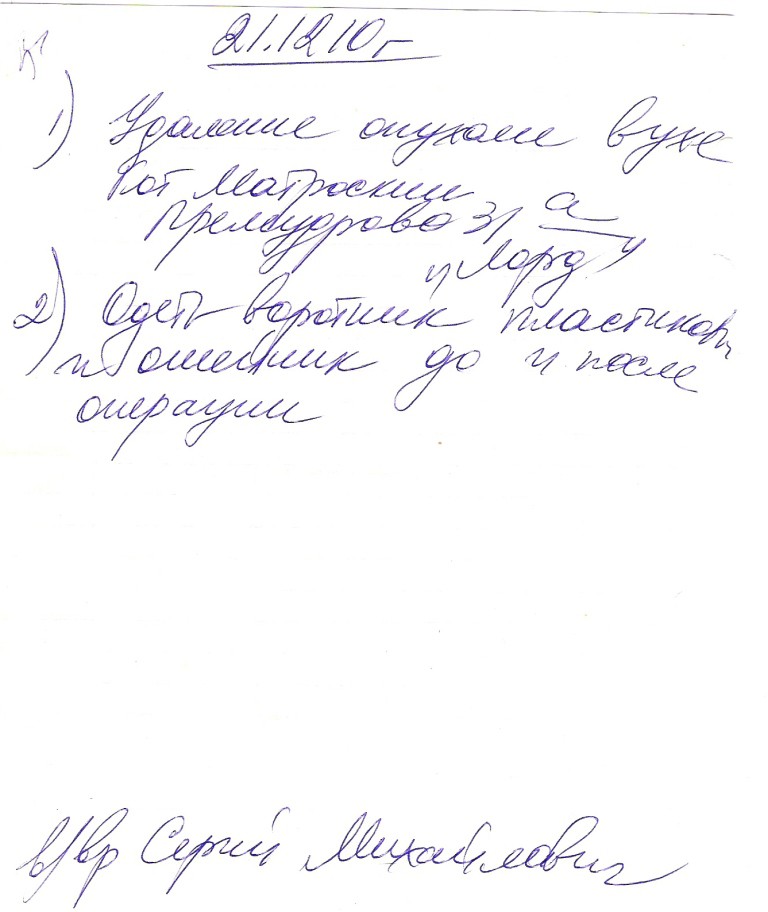 21.12 10г
1) Удаление опухоли в ухе
Кот Матроскин
31 а
и Лорд
2) Одеть воротник пластиков
и ошейник до и после
операции
в/вр Сергей Михайлович